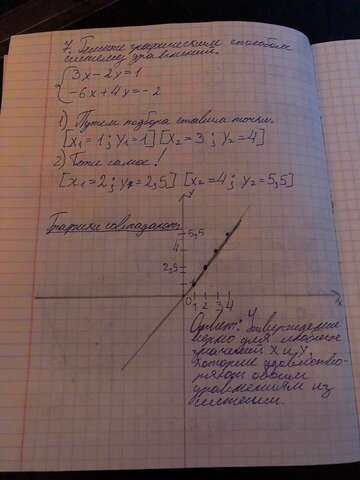 7. Решите графическим способом
систему уравнений.
3x - 2y = 1
-6x + 4y = -2
1) Путем подбора ставим точки.
[x₁ = 1 ; y₁ = 1] [x₂ = 3 ; y₂ = 4]
2) Тоже самое!
[x₁ = 2 ; y₁ = 2,5] [x₂ = 4 ; y₂ = 5,5]
Графики совпадают.
y
5,5
4
2,5
0 1 2 3 4
x
Ответ: Утверждение
верно для любых
значений x и y,
которые удовлетво-
ряют обоим
уравнениям из
системы.